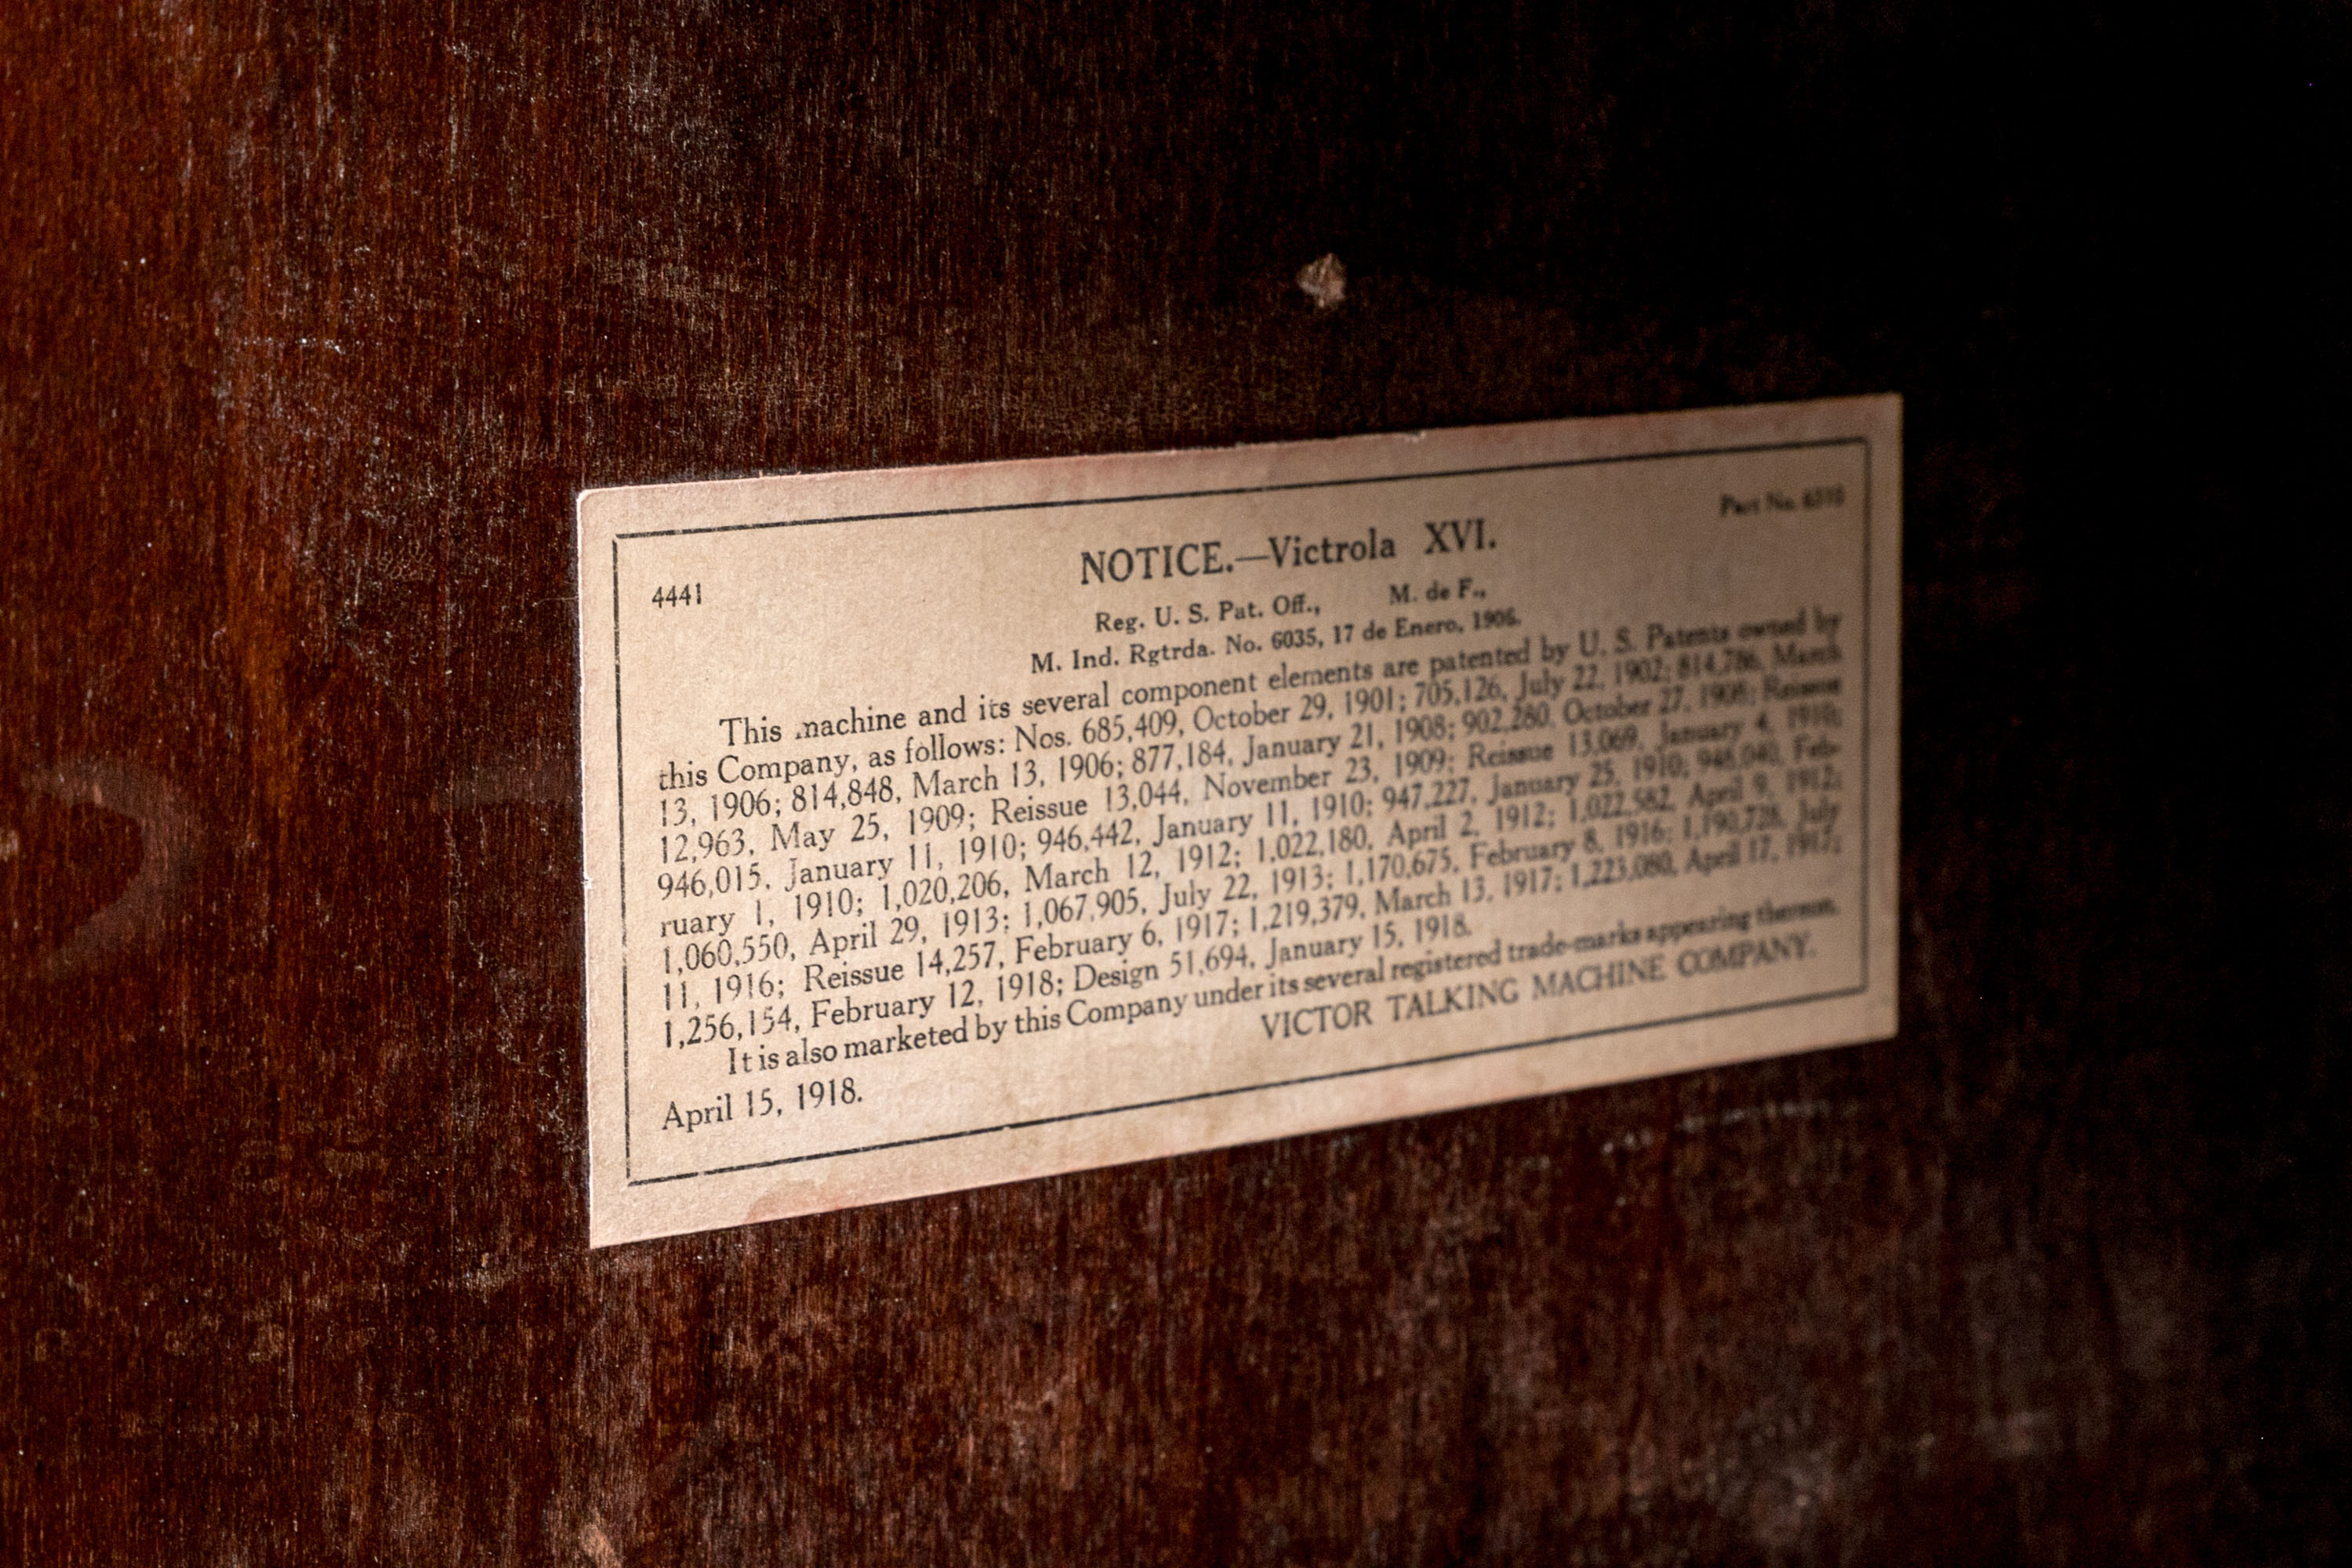 Part No. 6510
NOTICE.—Victrola XVI.
4441
Reg. U. S. Pat. Off., M. de F.,
M. Ind. Rgtrda. No. 6035, 17 de Enero, 1906.
This machine and its several component elements are patented by U. S. Patents owned by
this Company, as follows: Nos. 685,409, October 29, 1901; 705,126, July 22, 1902; 814,786, March
13, 1906; 814,848, March 13, 1906; 877,184, January 21, 1908; 902,280, October 27, 1908; Reissue
12,963, May 25, 1909; Reissue 13,044, November 23, 1909; Reissue 13,069, January 4, 1910;
946,015, January 11, 1910; 946,442, January 11, 1910; 947,227, January 25, 1910; 948,040, Feb-
ruary 1, 1910; 1,020,206, March 12, 1912; 1,022,180, April 2, 1912; 1,022,582, April 9, 1912;
1,060,550, April 29, 1913; 1,067,905, July 22, 1913; 1,170,675, February 8, 1916; 1,190,728, July
11, 1916; Reissue 14,257, February 6, 1917; 1,219,379, March 13, 1917; 1,223,080, April 17, 1917;
1,256,154, February 12, 1918; Design 51,694, January 15, 1918.
It is also marketed by this Company under its several registered trade-marks appearing thereon.
VICTOR TALKING MACHINE COMPANY.
April 15, 1918.